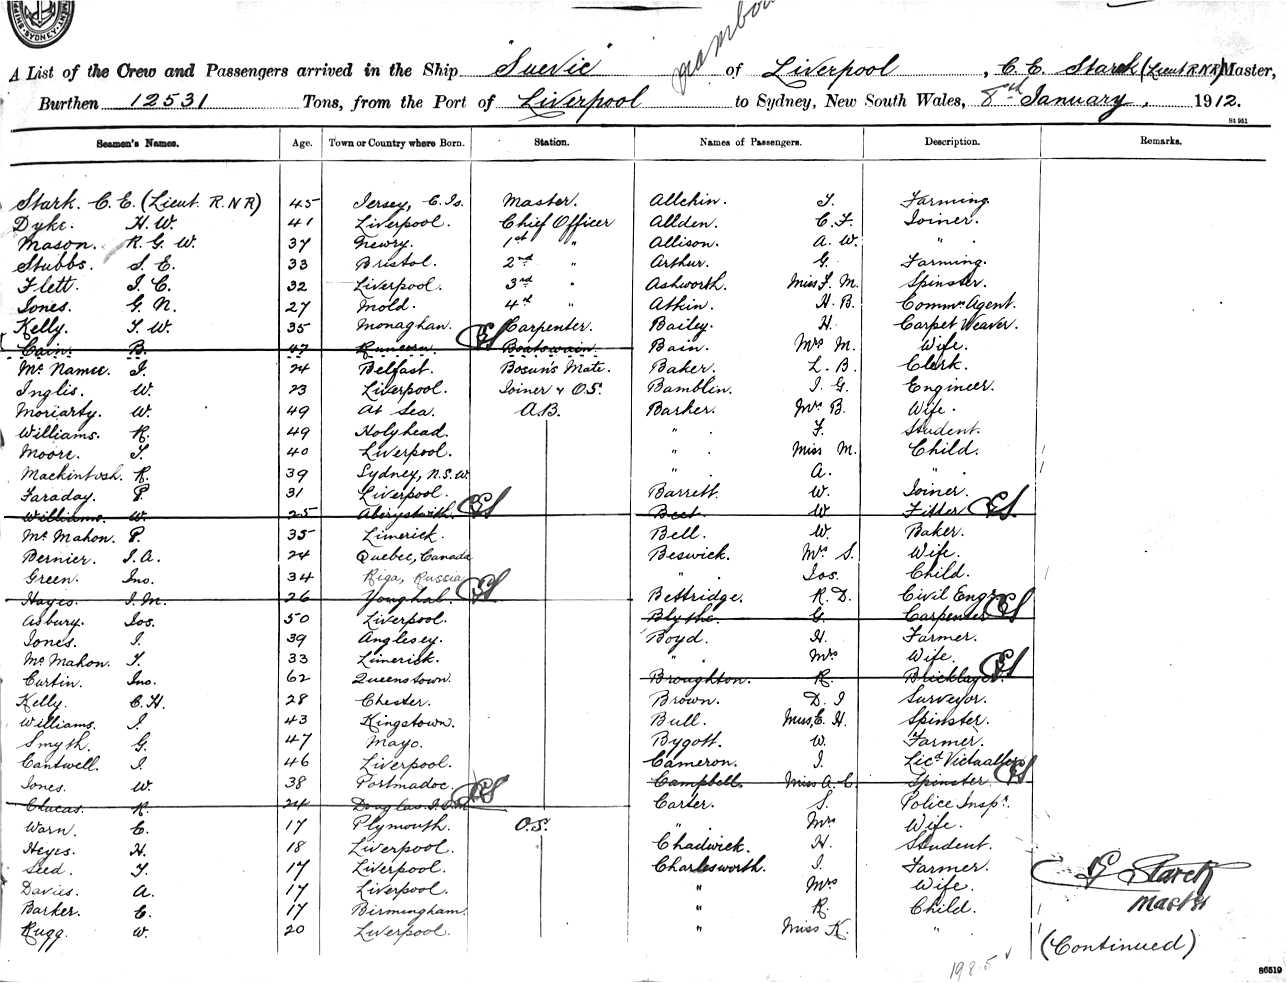 A List of the Crew and Passengers arrived in the Ship "Suevic" of Liverpool, C. E. Stark (Lieut R.N.R) Master,
Burthen 12531 Tons, from the Port of Liverpool to Sydney, New South Wales, 8th January, 1912.
S4 951
Seamen's Names. Age. Town or Country where Born. Station. Names of Passengers. Description. Remarks.
Stark. C. E. (Lieut. R.N.R) 45 Jersey, C. Is. Master. Allchin. T. Farming.
Dyke. H. W. 41 Liverpool. Chief Officer Allden. C. F. Joiner.
Mason. R. G. W. 37 Newry. 1st " Allison. A. W. " .
Stubbs. S. E. 33 Bristol. 2nd " Arthur. G. Farming.
Flett. J. C. 32 Liverpool. 3rd " Ashworth. Miss F. M. Spinster.
Jones. G. N. 27 Mold. 4th " Atkin. H. B. Commn. Agent.
Kelly. T. W. 35 Monaghan. Carpenter. Bailey. H. Carpet Weaver.
Cain. B. 47 Runcorn. Boatswain. Bain. Mrs M. Wife.
McNamee. J. 24 Belfast. Bosun's Mate. Baker. L. B. Clerk.
Inglis. W. 23 Liverpool. Joiner & O.S. Bamblin. J. G. Engineer.
Moriarty. W. 49 At Sea. A.B. Barker. Mrs B. Wife.
Williams. R. 49 Holyhead. " . F. Student.
Moore. T. 40 Liverpool. " . Miss M. Child.
Mackintosh. R. 39 Sydney, N.S.W. " . A. " .
Faraday. P. 31 Liverpool. Barrett. W. Joiner.
Williams. W. 25 Aberystwith. Best W. Fitter
McMahon. P. 35 Limerick. Bell. W. Baker.
Bernier. J. A. 24 Quebec, Canada Beswick. Mrs S. Wife.
Green. Jno. 34 Riga, Russia " . Jos. Child.
Hayes. J. M. 26 Youghal. Bettridge. R. D. Civil Engr.
Asbury. Jos. 50 Liverpool. Blythe. G. Carpenter
Jones. J. 39 Anglesey. Boyd. H. Farmer.
McMahon. T. 33 Limerick. " . Mrs Wife.
Curtin. Jno. 62 Queenstown. Broughton. R. Bricklayer
Kelly. C. H. 28 Chester. Brown. D. J Surveyor.
Williams. J. 43 Kingstown. Bull. Miss E. H. Spinster.
Smyth. G. 47 Mayo. Bygott. W. Farmer.
Cantwell. J. 46 Liverpool. Cameron. J. Licd. Victualler
Jones. W. 38 Portmadoc. Campbell. Miss A. C. Spinster
Clucas. R. 24 Douglas. I.O.M Carter. S. Police Inspr.
Warn. C. 17 Plymouth. O.S. " . Mrs Wife.
Heyes. H. 18 Liverpool. Chadwick. H. Student.
Seed. T. 17 Liverpool. Charlesworth. J. Farmer.
Davies. A. 17 Liverpool. " Mrs Wife.
Barker. C. 17 Birmingham. " R. Child.
Rugg. W. 20 Liverpool. " Miss K. "
Stark
Master
(Continued)
1985
86519